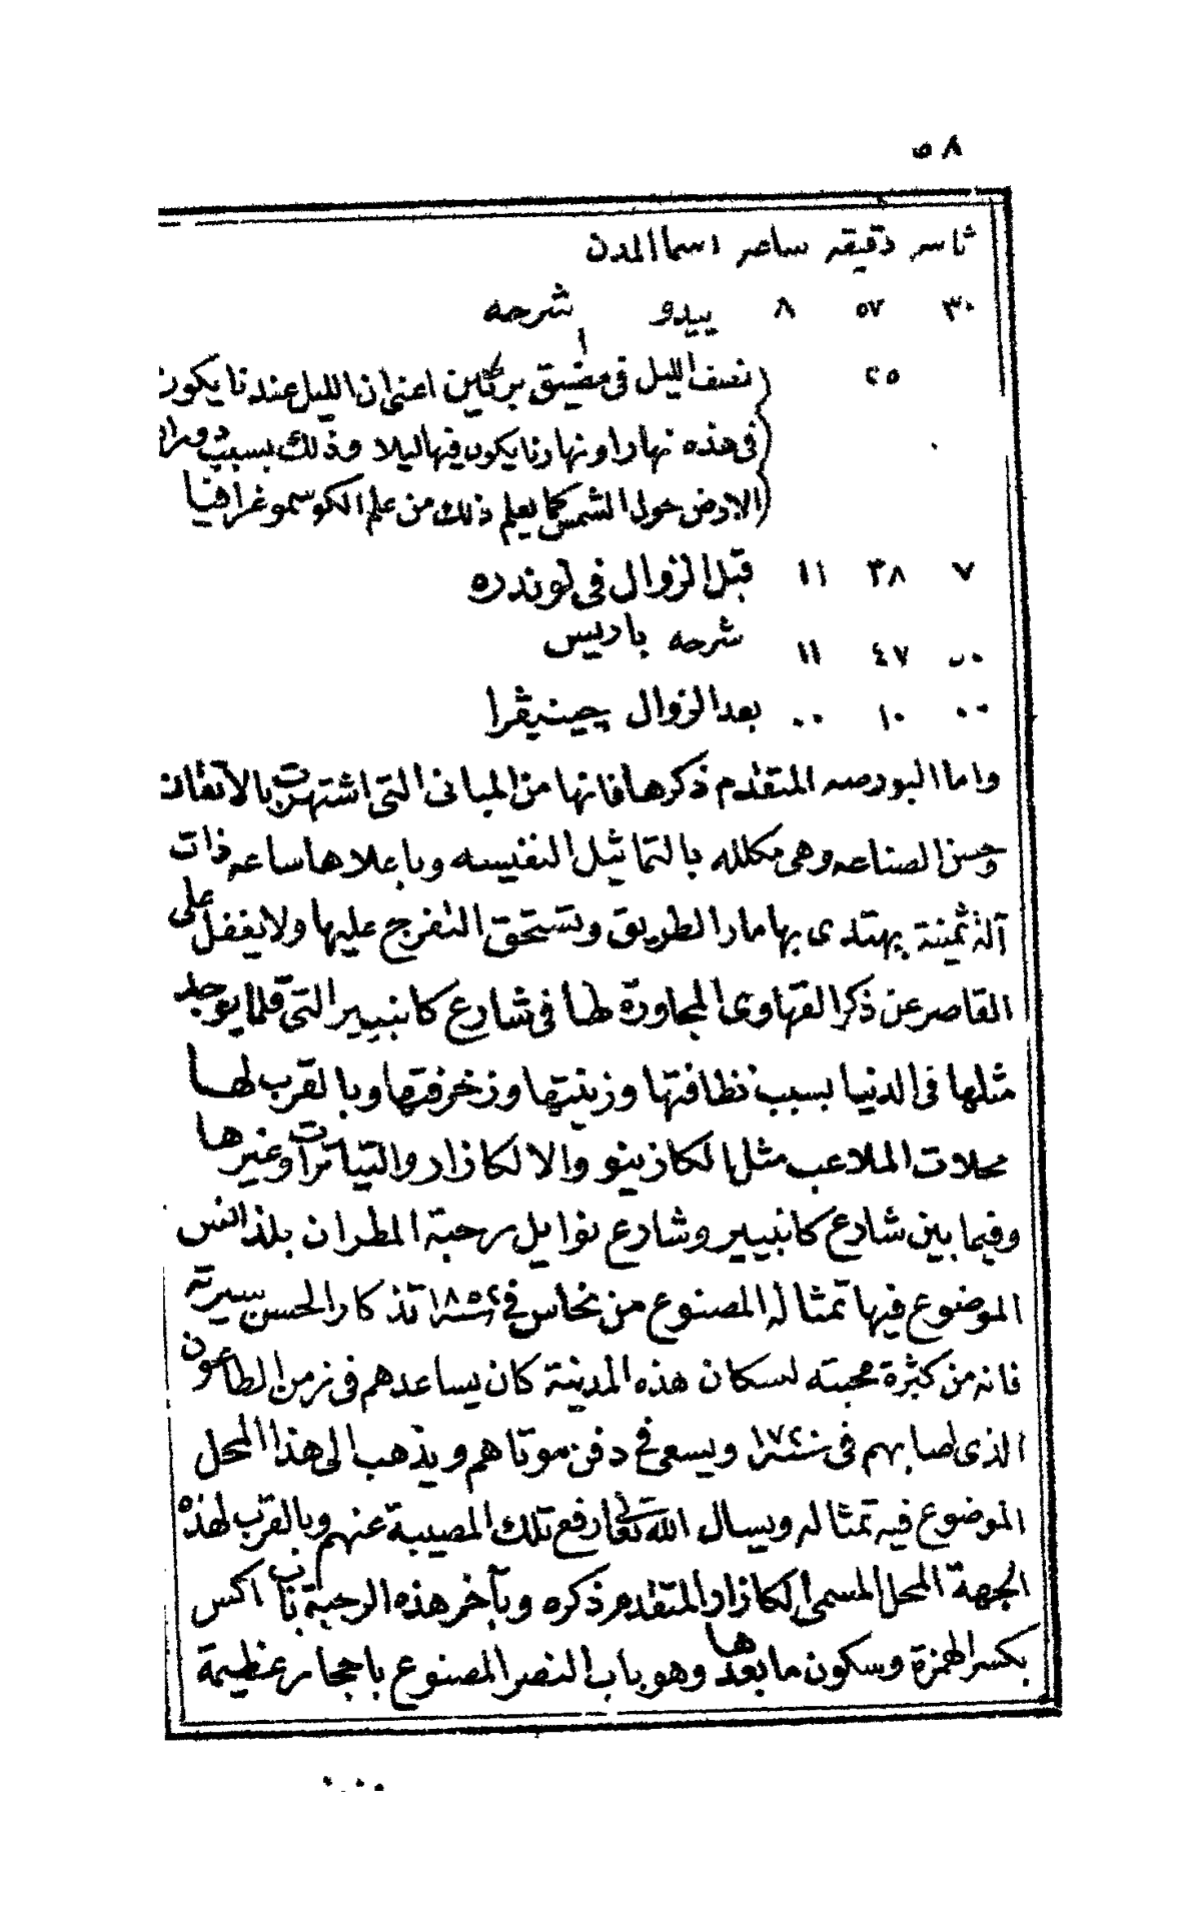 ٥٨
ثانيه دقيقه ساعه اسما المدن
٣٠ ٥٧ ٨ ييدو شرحه
٢٥ نصف الليل فى مضيق بركين اعنى ان الليل عندنا يكون
فى هذه نهارا ونهارنا يكون فيها ليلا وذلك بسبب دوران
الارض حول الشمس كما يعلم ذلك من علم الكوسموغرافيا
٧ ٣٨ ١١ قبل الزوال فى لوندره
٤٧ ١١ شرحه باريس
٠٠ ١٠ ٠٠ بعد الزوال چينيڤرا
واما البورصه المتقدم ذكرها فانها من المبانى التى اشتهرت بالاتقان
وحسن الصناعه وهى مكلله بالتماثيل النفيسه وباعلاها ساعه ذات
آلة ثمينة يهتدى بها مار الطريق وتستحق التفرج عليها ولا يغفل على
القاصر عن ذكر القهاوى المجاورة لها فى شارع كانبيير التى قلما يوجد
مثلها فى الدنيا بسبب نظافتها وزينتها وزخرفتها وبالقرب لها
محلات الملاعب مثل الكازينو والالكازار والتياترات وغيرها
وفيما بين شارع كانبيير وشارع نوايل رحبة المطران بلذانس
الموضوع فيها تمثاله المصنوع من نحاس فى سنة ١٨٥٢ تذكارا لحسن سيرته
فانه من كثرة محبته لسكان هذه المدينة كان يساعدهم فى زمن الطاعون
الذى اصابهم فى سنة ١٧٢٠ ويسعى فى دفن موتاهم ويذهب الى هذا المحل
الموضوع فيه تمثاله ويسال الله تعالى رفع تلك المصيبة عنهم وبالقرب لهذه
الجهة المحل المسمى الكازار المتقدم ذكره وبآخر هذه الرحبة باب اكس
بكسر الهمزة وسكون ما بعدها وهو باب النصر المصنوع باحجار عظيمة